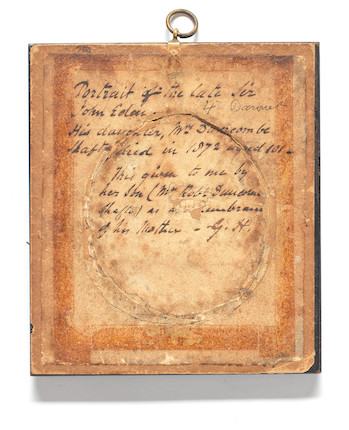 Portrait of the late Sir
John Eden. 4th Baronet
His daughter, Mrs Duncombe
Shafto died in 1872 aged 101.
This given to me by
her Son (Mr Robt Duncombe
Shafto) as a remembrance
of his Mother - G. H.